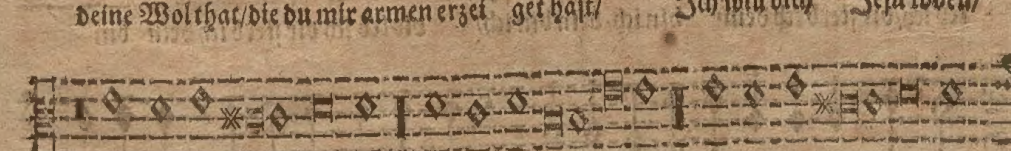 deine Wolthat/die du mir armen erzei get hast/ Ich will dich Jesu loben/